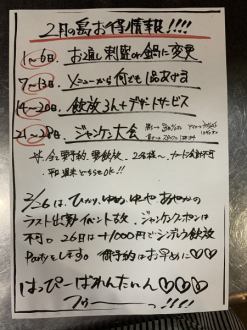 2月の島お得情報!!!!
1〜6日 お通し刺盛or鍋に変更
7〜13日 メニューから何でも1品あげる
14〜20日 飲放3h+デザートサービス
21〜28日 ジャンケン大会
2名様〜 カード
平日 週末どちらもOK!!
2/26は、ひかり、ゆめ、ゆや あやかの
ラスト出勤イベント故、ジャンケンクーポンは
不可。26日は+1000円でシンデレラ飲放
Partyをします。御予約はお早めに♡♡
はっぴーばれんたいん♡♡♡
フゥー〜っ!!!!